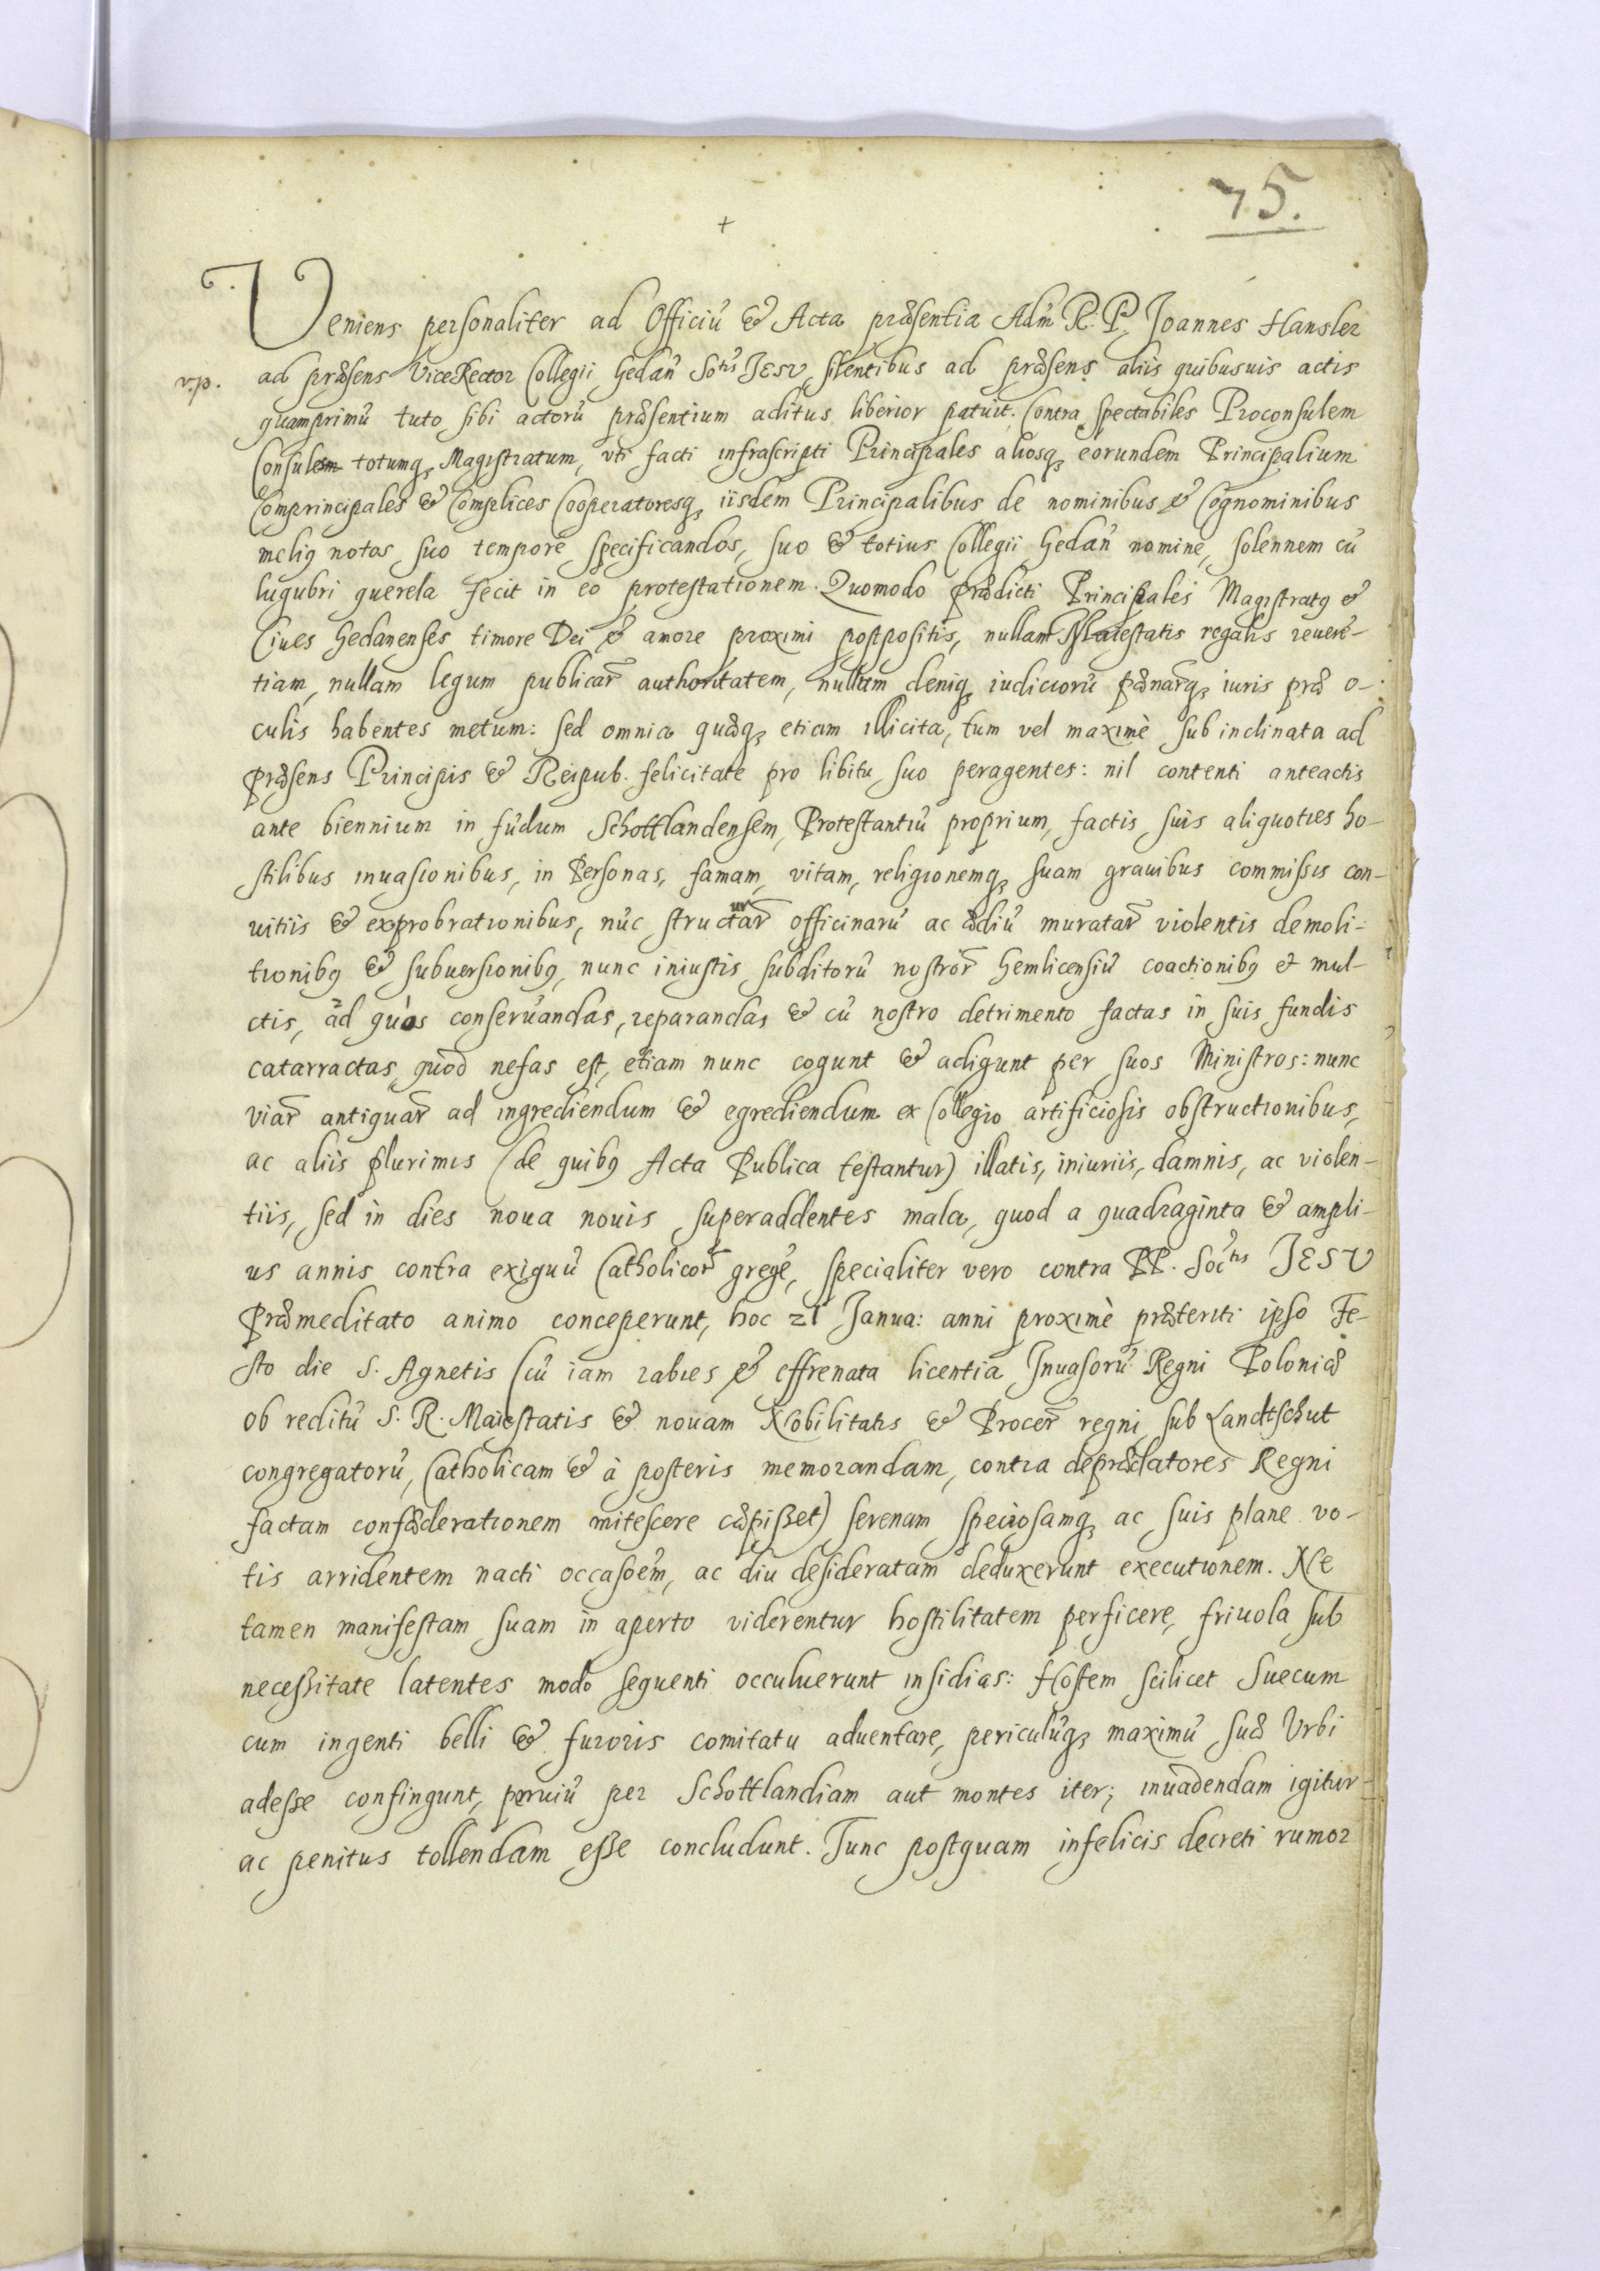 75.
+
Veniens personaliter ad Officiũ & Acta præsentia Adm̃ R. P. Joannes Hansler
v.p. ad præsens ViceRector Collegii Gedañ Sotis JESV, silentibus ad præsens aliis quibusuis actis
quamprimũ tuto sibi actorũ præsentium aditus liberior patuit. Contra Spectabiles Proconsulem
Consulem totumq; Magistratum, vti facti infrascripti Principales aliosq; eorundem Principalium
Comprincipales & Complices Cooperatoresq; iisdem Principalibus de nominibus & Cognominibus
meliꝰ notos suo tempore specificandos, suo & totius Collegii Gedañ nomine, solennem cũ
lugubri querela fecit in eo protestationem. Quomodo prædicti Principales Magistratꝰ &
Ciues Gedanenses timore Dei & amore proximi postpositis, nullam Maiestatis regalis reuerẽ-
tiam, nullam legum publicar̃ authoritatem, nullum deniq; iudiciorũ pænar̃q; iuris præ o-
culis habentes metum: sed omnia quæq; etiam illicita, tum vel maximè sub inclinata ad
præsens Principis & Reipub. felicitate pro libitu suo peragentes: nil contenti anteactis
ante biennium in fũdum Schottlandensem, Protestantiũ proprium, factis suis aliquoties ho-
stilibus inuasionibus, in Personas, famam, vitam, religionemq; suam grauibus commissis con-
uitiis & exprobrationibus, nũc structurar̃ officinarũ ac ædiũ muratar̃ violentis demoli-
tionibꝰ & subuersionibꝰ, nunc iniustis subditorũ nostror̃ Hemlicensiũ coactionibꝰ et mul-
ctis, ad quas conseruandas, reparandas & cũ nostro detrimento factas in suis fundis
catarractas, quod nefas est, etiam nunc cogunt & adigunt per suos Ministros: nunc
viar̃ antiquar̃ ad ingrediendum & egrediendum ex Collegio artificiosis obstructionibus,
ac aliis plurimis (de quibꝰ Acta Publica testantur) illatis, iniuriis, damnis, ac violen-
tiis, sed in dies noua nouis superaddentes mala, quod a quadraginta & ampli-
us annis contra exiguũ Catholicor̃ gregẽ, specialiter vero contra PP. Soc̃tis JESV
Præmeditato animo conceperunt, hoc 21 Janua: anni proximè præteriti ipso Fe-
sto die S. Agnetis (cũ iam rabies & effrenata licentia Inuasorũ Regni Poloniæ
ob reditũ S. R. Maiestatis & nouam Nobilitatis & Procer̃ regni, sub Landtschut
congregatorũ, Catholicam & à posteris memorandam, contra deprædatores Regni
factam confæderationem mitescere cæpisset) serenam speciosamq; ac suis plane vo-
tis arridentem nacti occasoẽm, ac diu desideratam deduxerunt executionem. Ne
tamen manifestam suam in aperto viderentur hostilitatem perficere, friuola sub
necessitate latentes modo sequenti occuluerunt insidias: Hostem scilicet Suecum
cum ingenti belli & furoris comitatu aduentare, periculũq; maximũ suæ Vrbi
adesse confingunt, peruiũ per Schottlandiam aut montes iter; inuadendam igitur
ac penitus tollendam esse concludunt. Tunc postquam infelicis decreti rumor